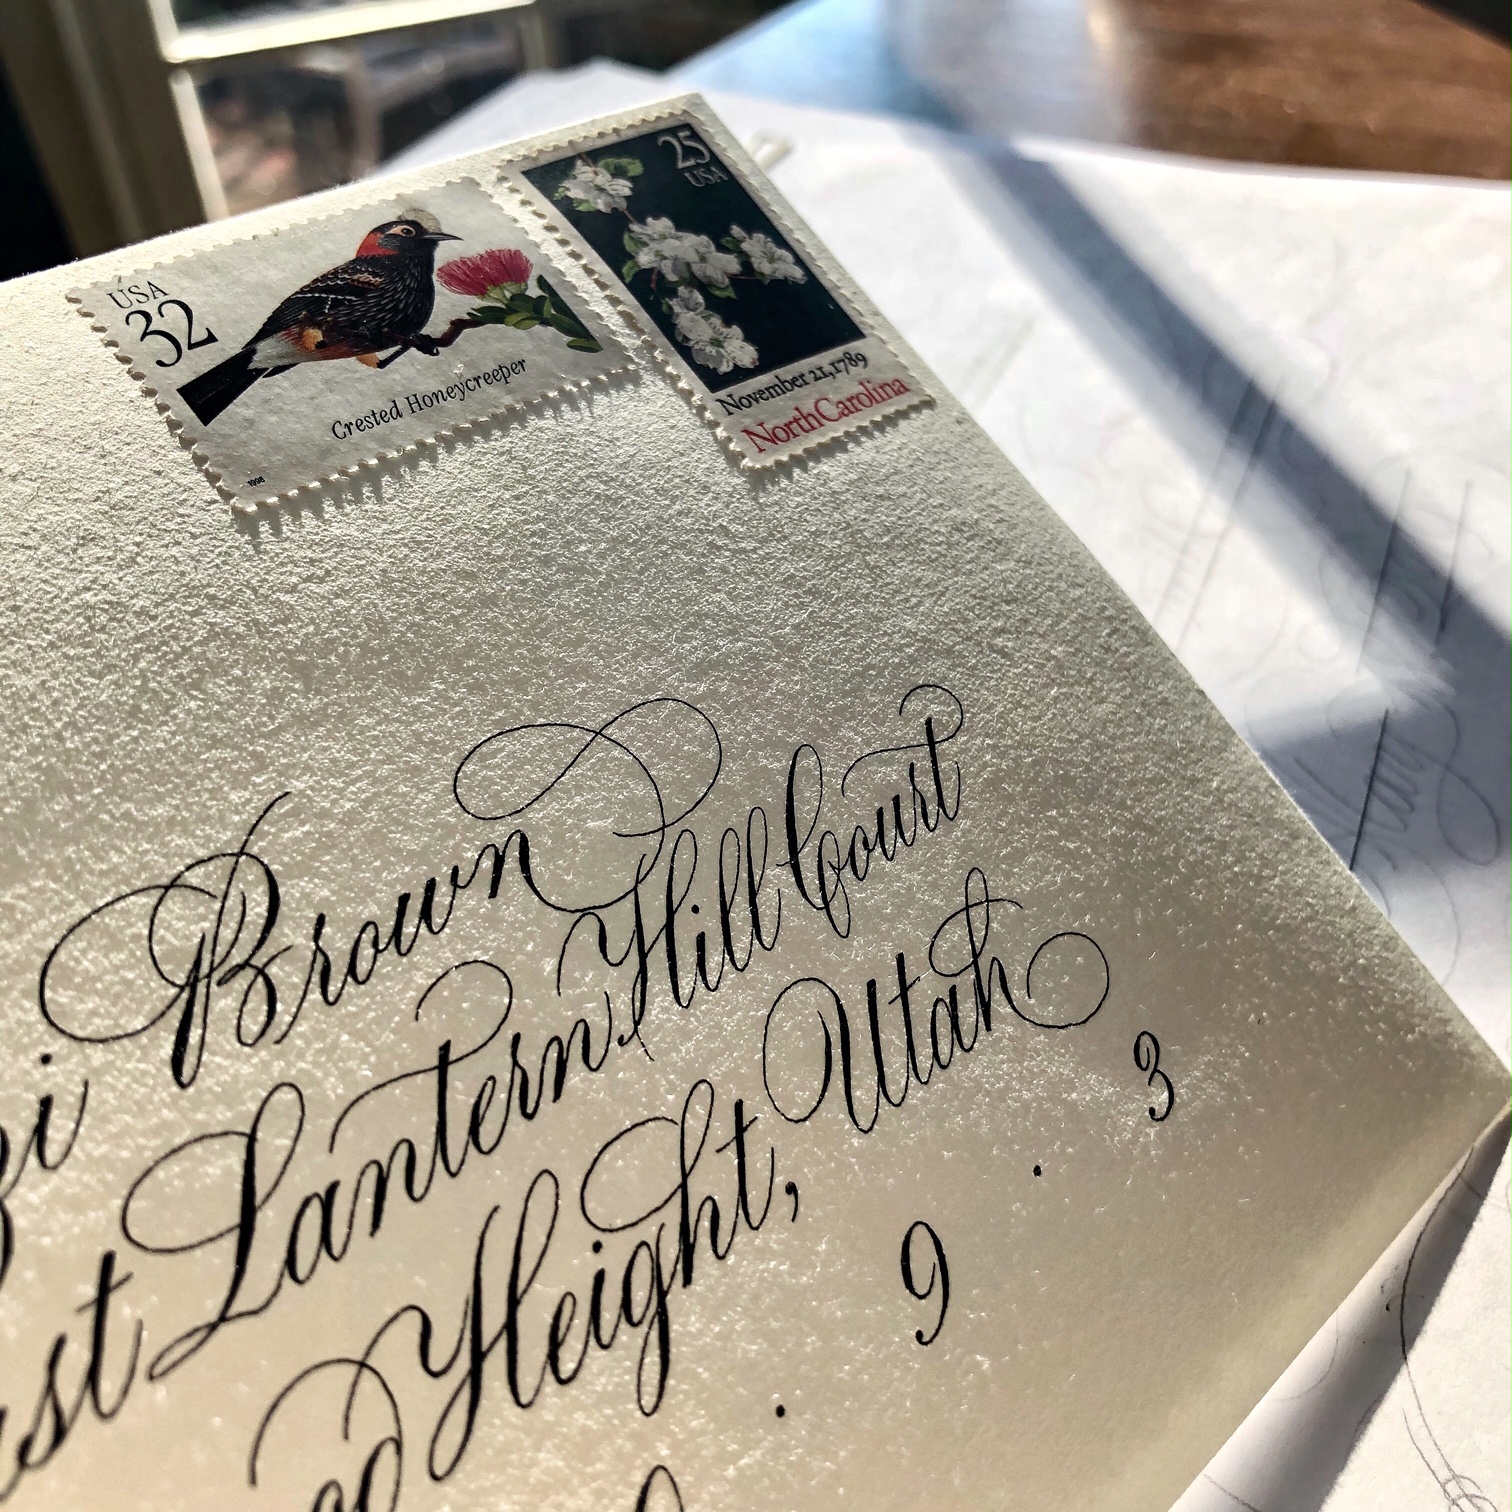 USA
32
Crested Honeycreeper
1998
25
USA
November 21, 1789
North Carolina
Brown
Lantern Hill Court
Height, Utah
9 . 3